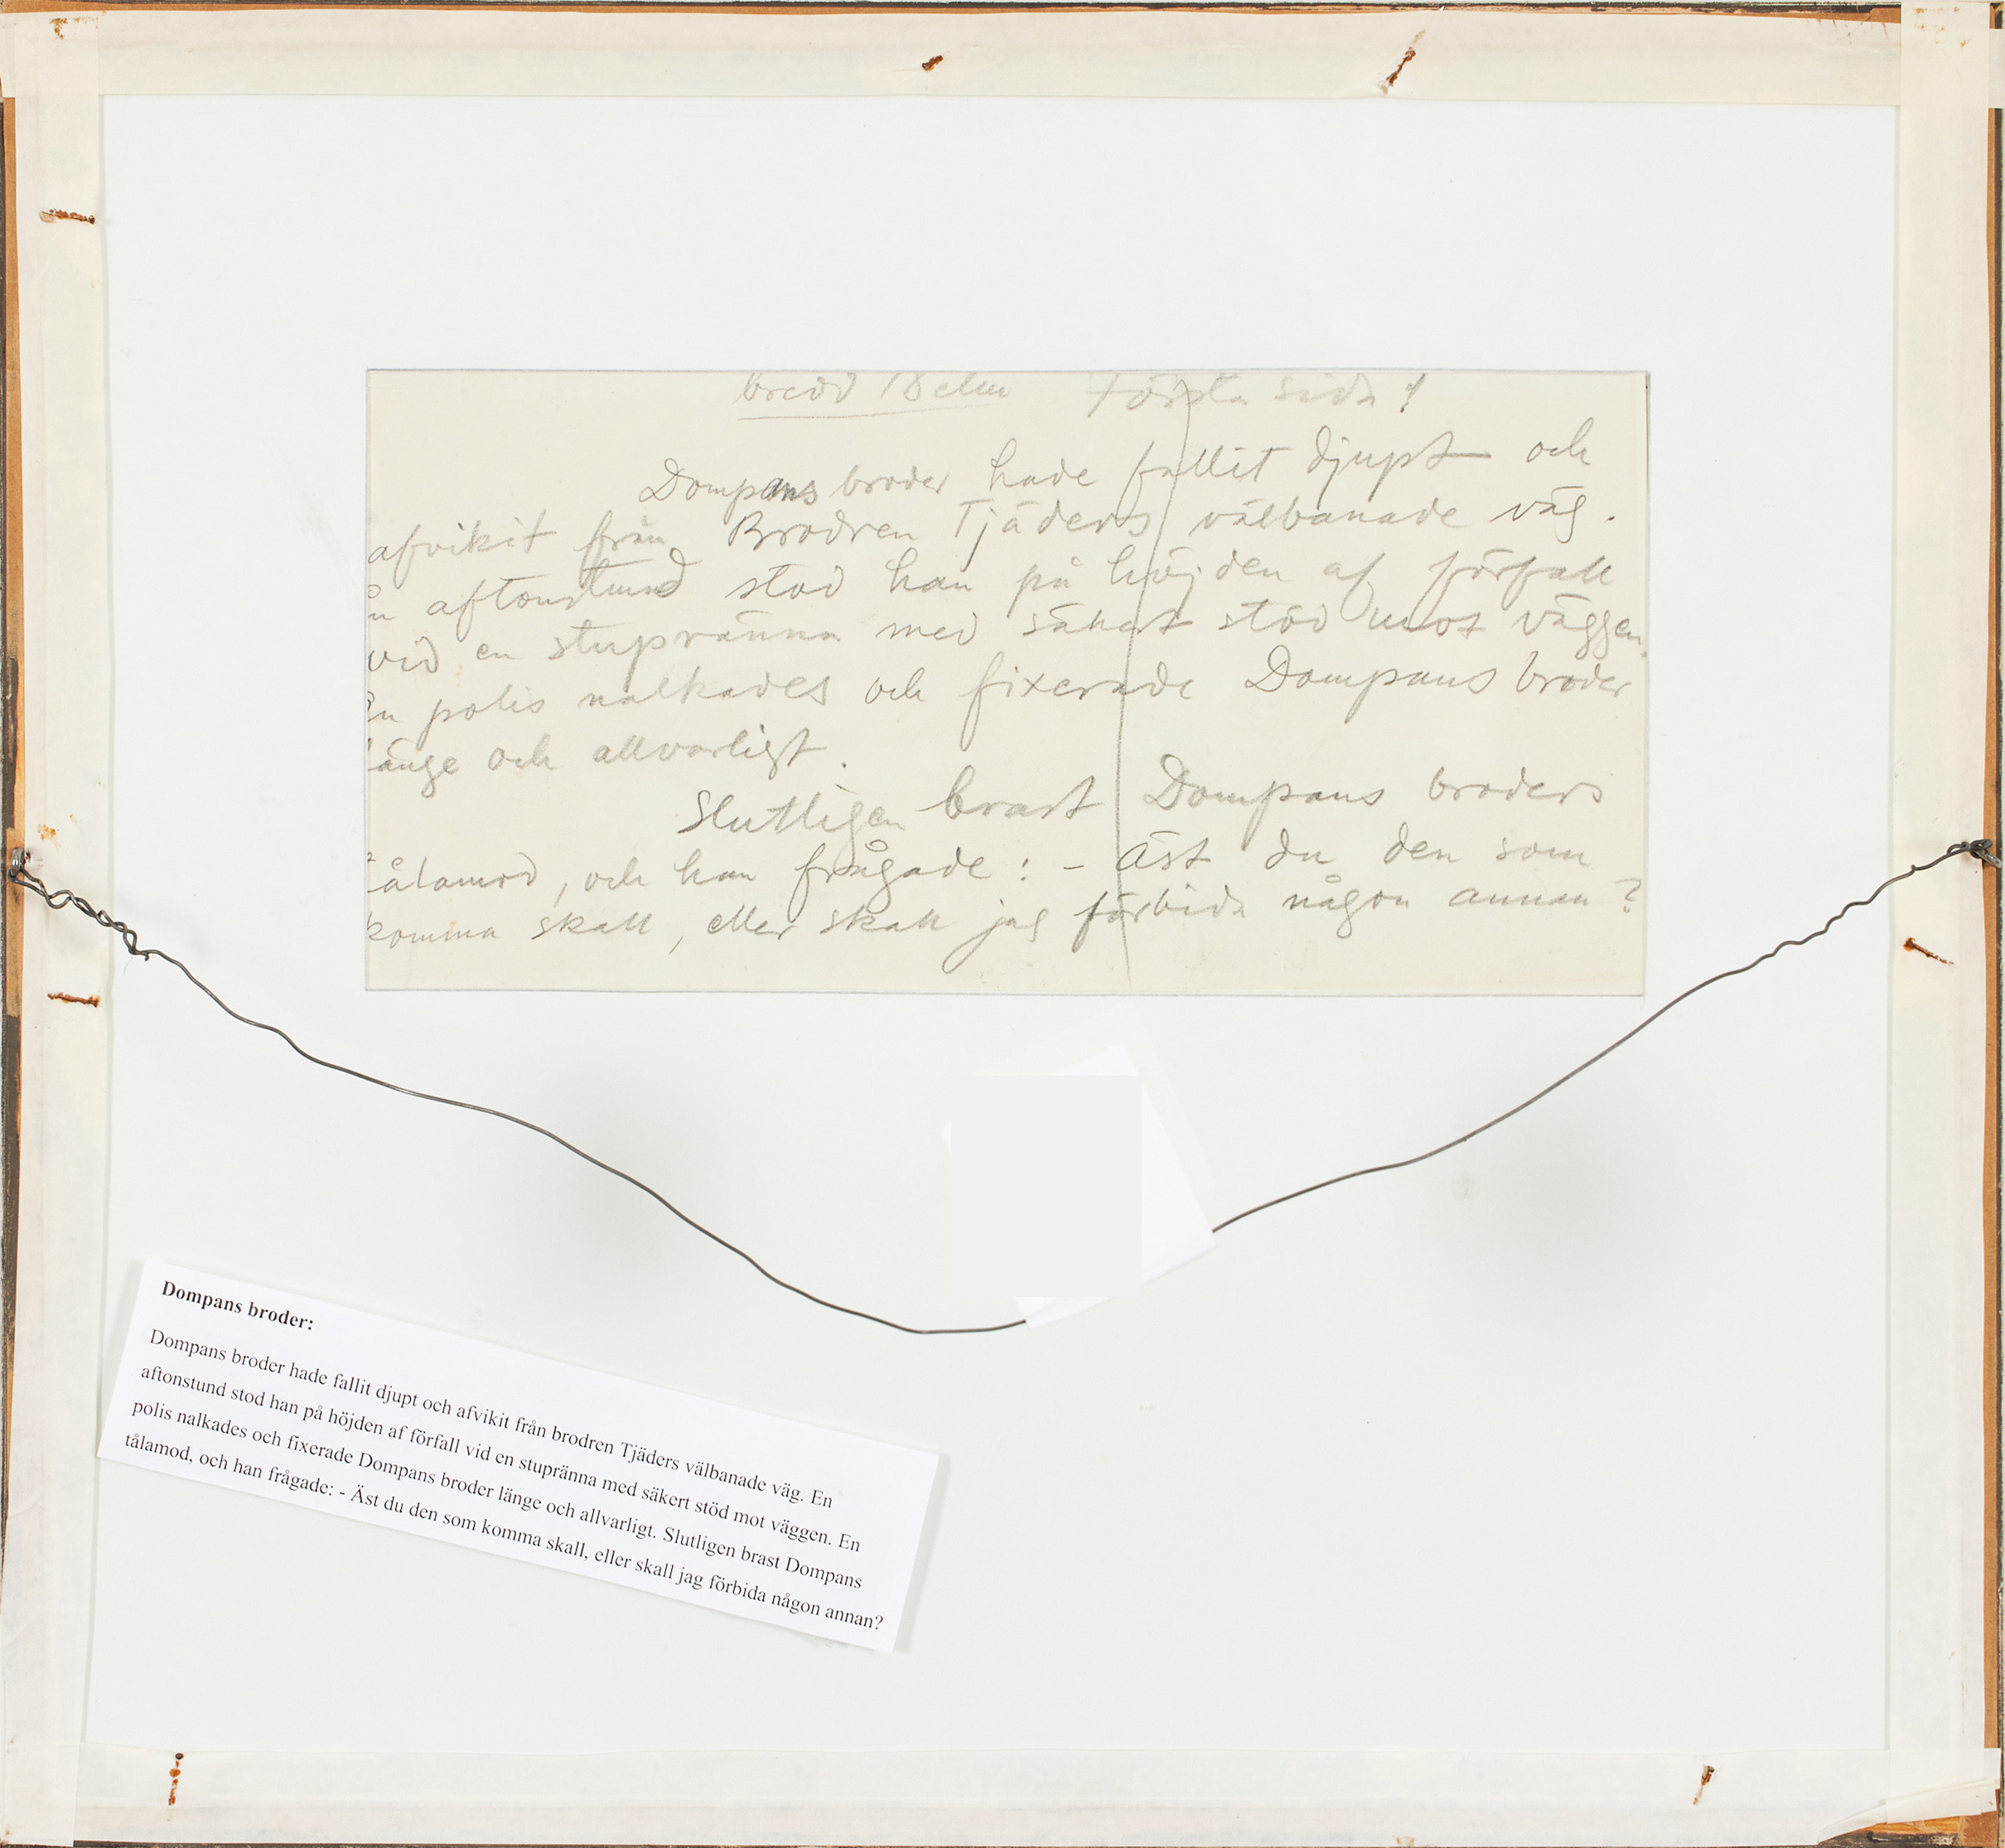 bredd 18 ctm Första sida!
Dompans broder hade fallit djupt och
afvikit från Brodren Tjäders välbanade väg.
n aftonstund stod han på höjden af förfall
vid en stupränna med säkert stöd mot väggen.
n polis nalkades och fixerade Dompans broder
länge och allvarligt.
Slutligen brast Dompans broders
tålamod, och han frågade: - Äst du den som
komma skall, eller skall jag förbida någon annan?
Dompans broder:
Dompans broder hade fallit djupt och afvikit från brodren Tjäders välbanade väg. En
aftonstund stod han på höjden af förfall vid en stupränna med säkert stöd mot väggen. En
polis nalkades och fixerade Dompans broder länge och allvarligt. Slutligen brast Dompans
tålamod, och han frågade: - Äst du den som komma skall, eller skall jag förbida någon annan?